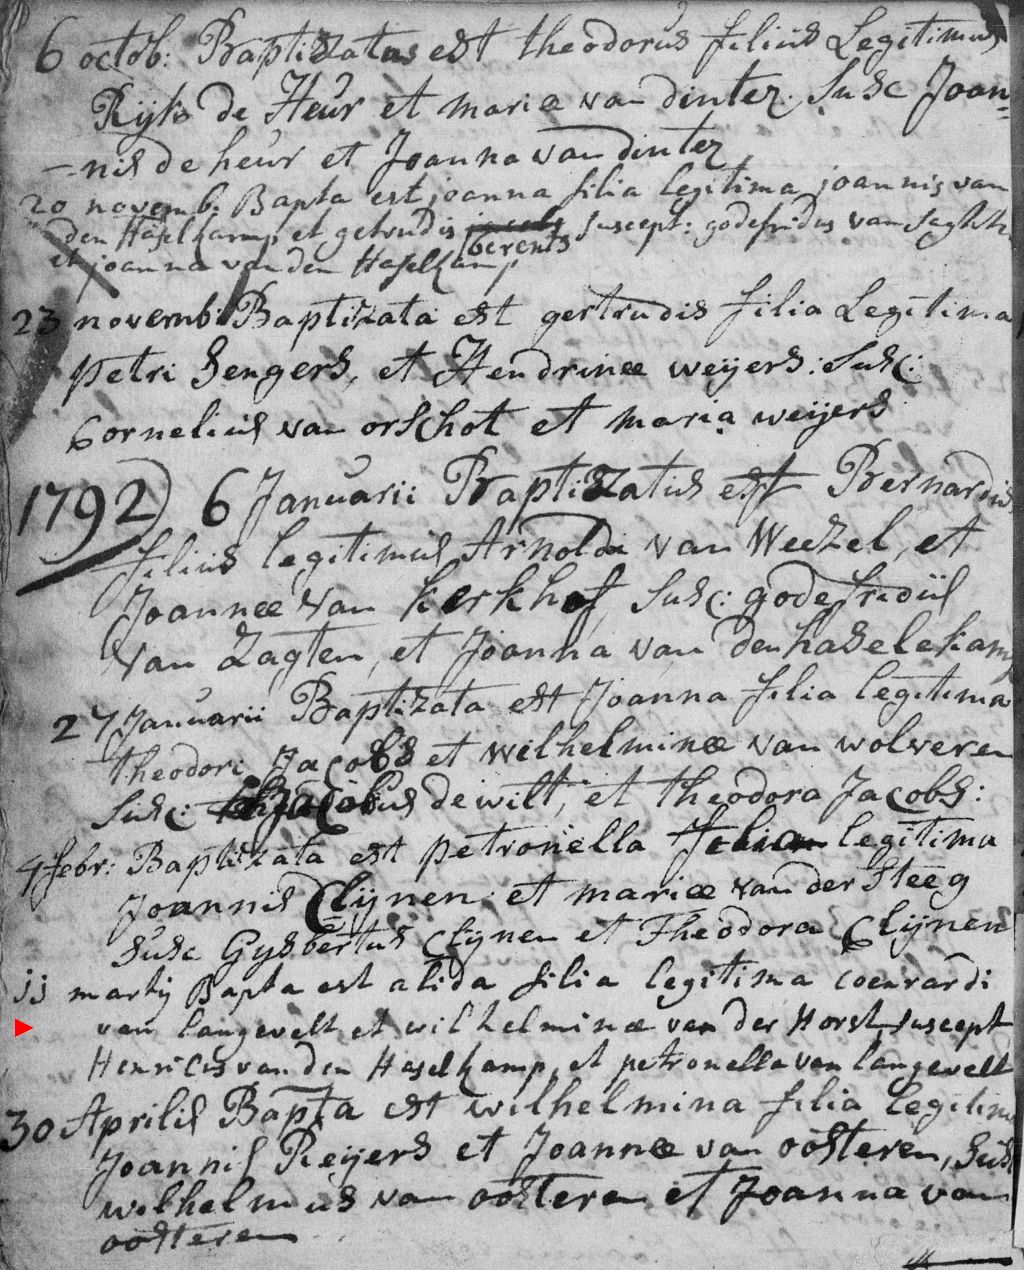 6 octob: Baptizatus est theodorus filius Legitimus
Rijk de Heur et mariæ van dinter. Susc Joan=
-nis de heur et Joanna van dinter
20 novemb: Bapta est joanna filia legitima joannis van
den Haselkamp et getrudis berents suscept: godefridus van Saghten
et joanna van den Haselkamp
23 novemb: Baptizata est gertrudis filia Legitima
petri Sengers, et Hendrinæ weijers: Susc:
Cornelius van orschot et maria weijers
1792) 6 Januarii Baptizatus est Bernardus
filius legitimus Arnoldi van Weezel, et
Joannæ van kerkhof, Susc: godefridus
van Zagten, et Joanna van den haselekamp
27 Januarii Baptizata est Joanna filia legitima
theodori Jacobs et wilhelminæ van wolveren
Susc: Jacobus de wilt, et theodora Jacobs:
4 febr: Baptizata est petronella filia legitima
Joannis Clijnen et mariæ van der Steeg
Susc Gysbertus Clijnen et Theodora Clijnen
jj martij Bapta est alida filia legitima coenrardi
van langevelt et wilhelminæ van der Horst suscept
Henricus van den Haselkamp, et petronella van langevelt
30 Aprilis Bapta est wilhelmina filia legitima
Joannis Reijers et Joannæ van oosteren, Susc
wilhelmus van oosteren et Joanna van
oosteren